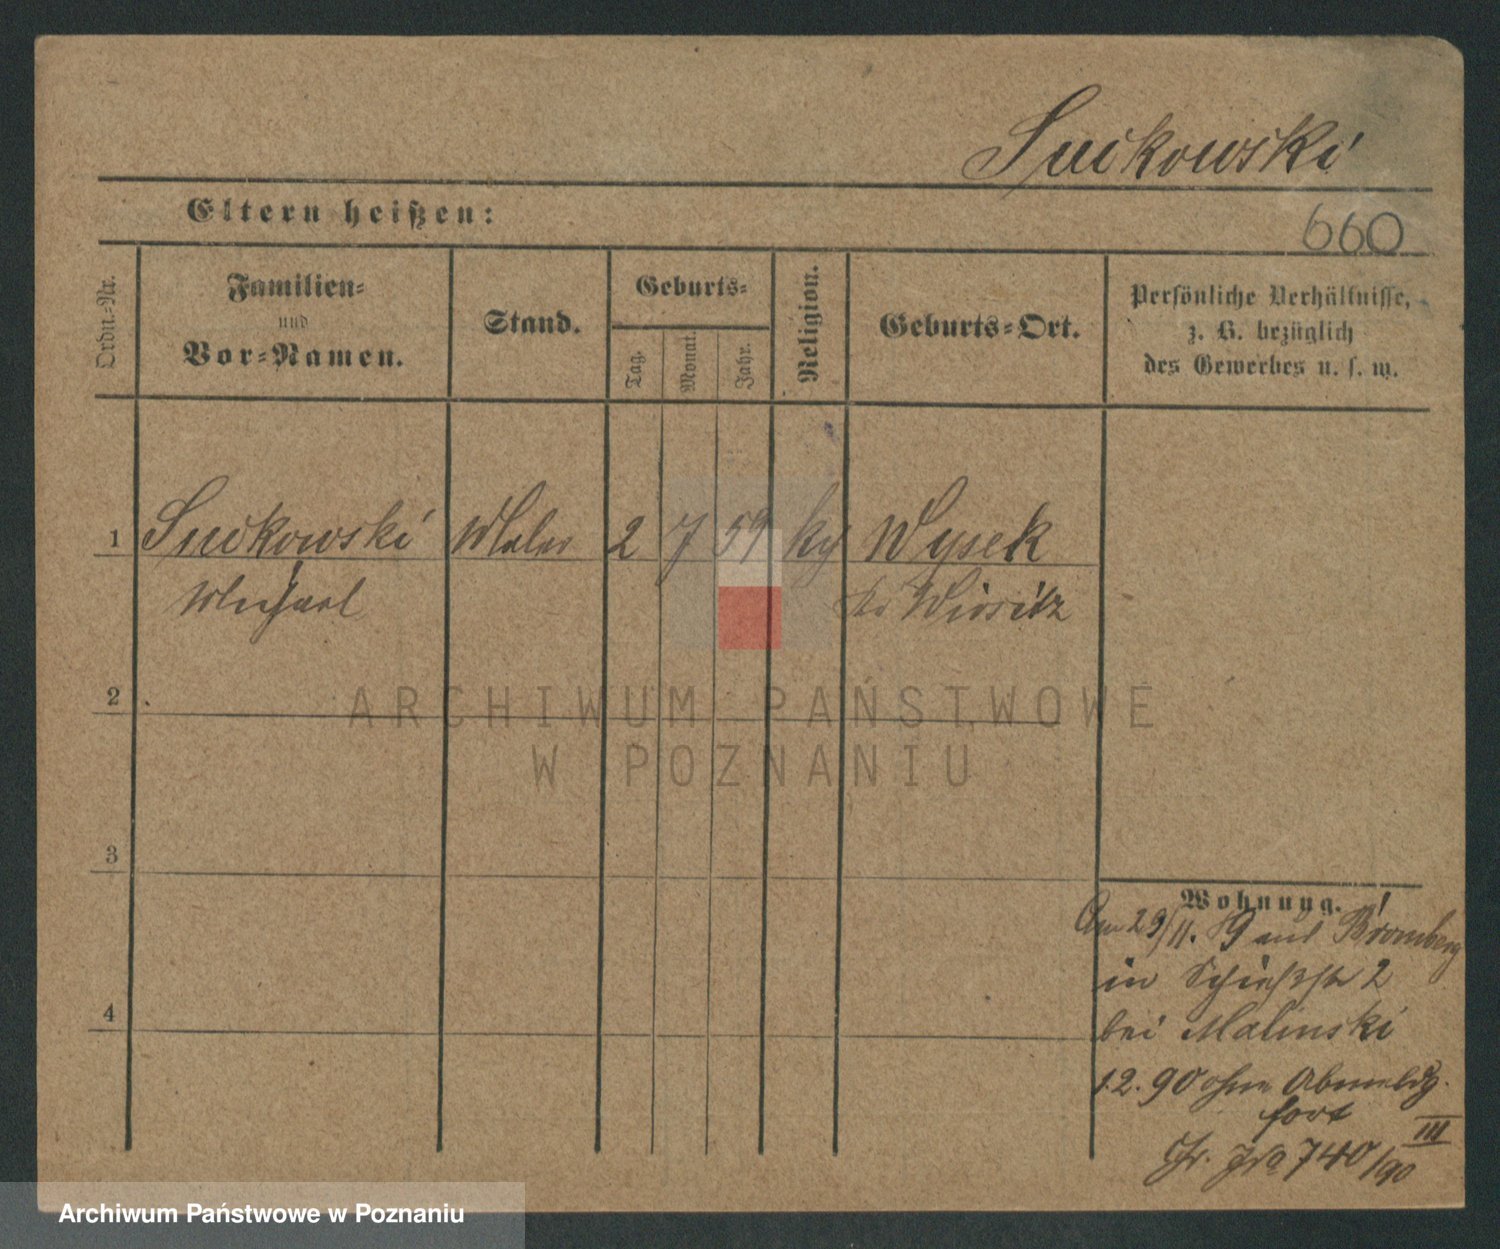 Suikowski
Eltern heißen:
660
Ordn.-Nr.
Familien-
und
Vor-Namen.
Stand.
Geburts-
Tag.
Monat.
Jahr.
Religion.
Geburts-Ort.
Persönliche Verhältnisse,
z. B. bezüglich
des Gewerbes u. s. w.
1 Suikowski Maler 2 7 59 Wysek
Michael Kr Wirsitz
2
3
4
Wohnung.
Am 29/11. 89 aus Bromberg
in Schießstr 2
bei Malinski
1.2.90 ohne Abmeldg.
fort
III
740/90
ARCHIWUM PAŃSTWOWE
W POZNANIU
Archiwum Państwowe w Poznaniu